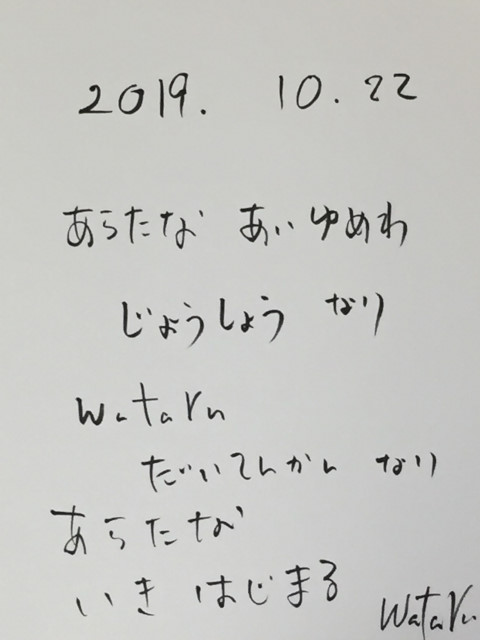 2019. 10.22
あらたな あい ゆめわ
じょうしょう なり
wataru
だいてんかん なり
あらたな
いき はじまる
Wataru